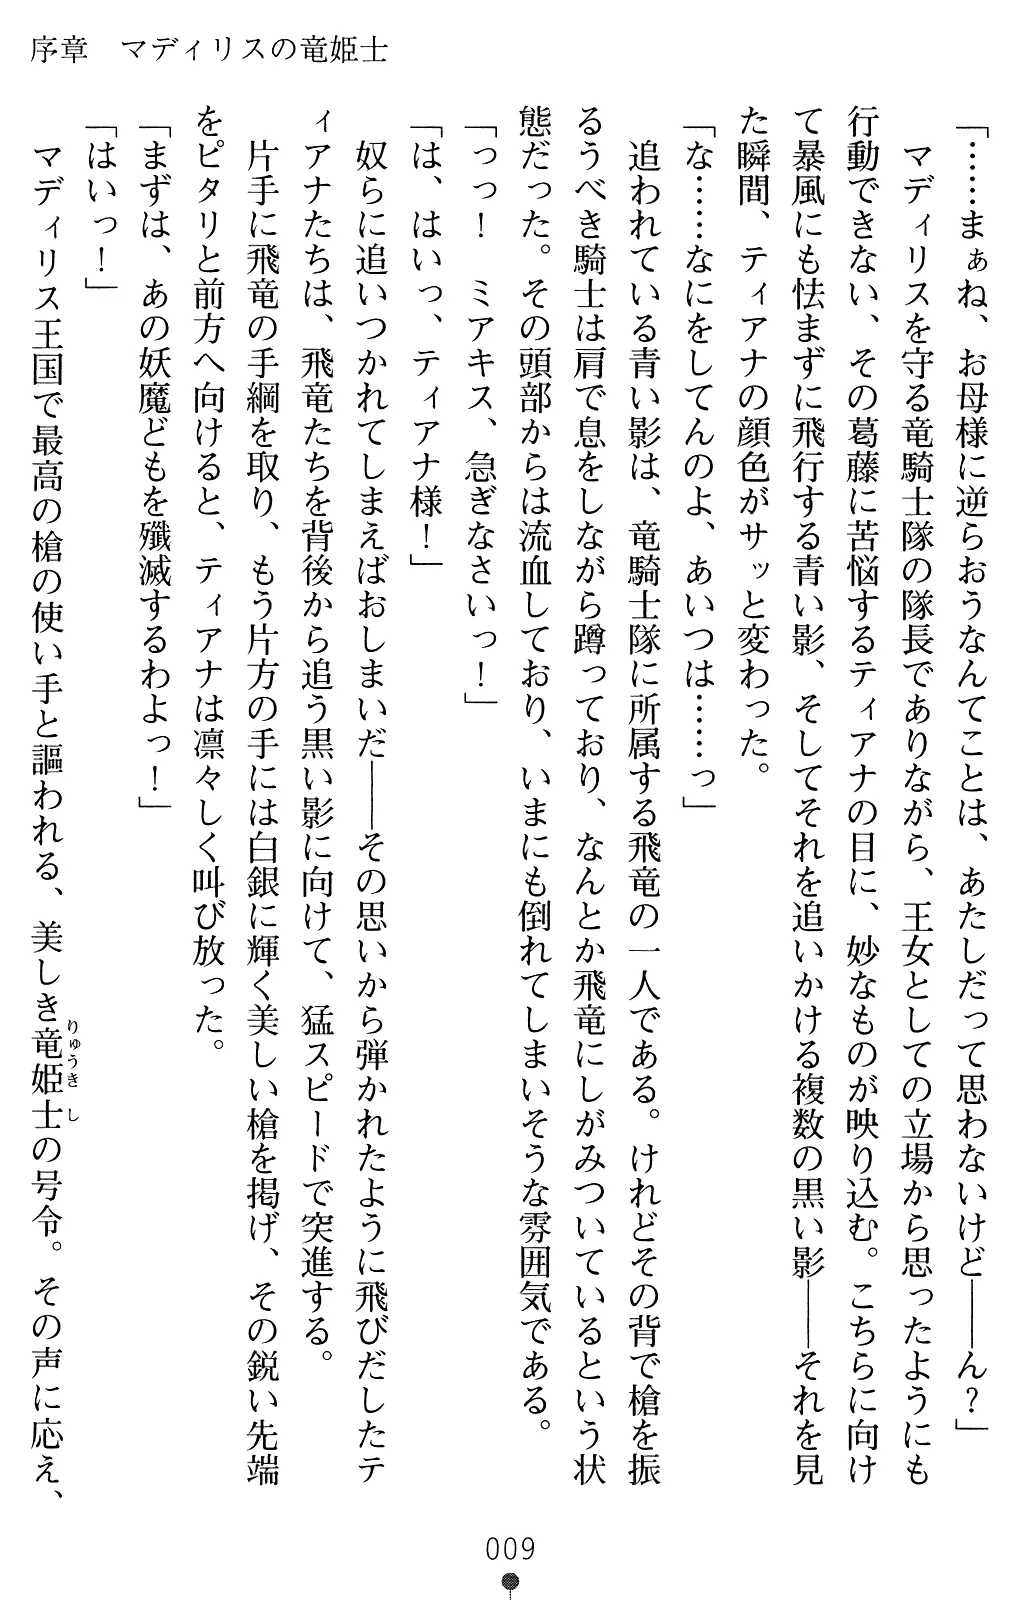 序章　マディリスの竜姫士
「……まぁね、お母様に逆らおうなんてことは、あたしだって思わないけど――ん？」
　マディリスを守る竜騎士隊の隊長でありながら、王女としての立場から思ったようにも
行動できない、その葛藤に苦悩するティアナの目に、妙なものが映り込む。こちらに向け
て暴風にも怯まずに飛行する青い影、そしてそれを追いかける複数の黒い影――それを見
た瞬間、ティアナの顔色がサッと変わった。
「な……なにをしてんのよ、あいつは……っ」
　追われている青い影は、竜騎士隊に所属する飛竜の一人である。けれどその背で槍を振
るうべき騎士は肩で息をしながら蹲っており、なんとか飛竜にしがみついているという状
態だった。その頭部からは流血しており、いまにも倒れてしまいそうな雰囲気である。
「っっ！　ミアキス、急ぎなさいっ！」
「は、はいっ、ティアナ様！」
　奴らに追いつかれてしまえばおしまいだ――その思いから弾かれたように飛びだしたテ
ィアナたちは、飛竜たちを背後から追う黒い影に向けて、猛スピードで突進する。
　片手に飛竜の手綱を取り、もう片方の手には白銀に輝く美しい槍を掲げ、その鋭い先端
をピタリと前方へ向けると、ティアナは凛々しく叫び放った。
「まずは、あの妖魔どもを殲滅するわよっ！」
「はいっ！」
　マディリス王国で最高の槍の使い手と謳われる、美しき竜姫士の号令。その声に応え、
りゅうきし
009